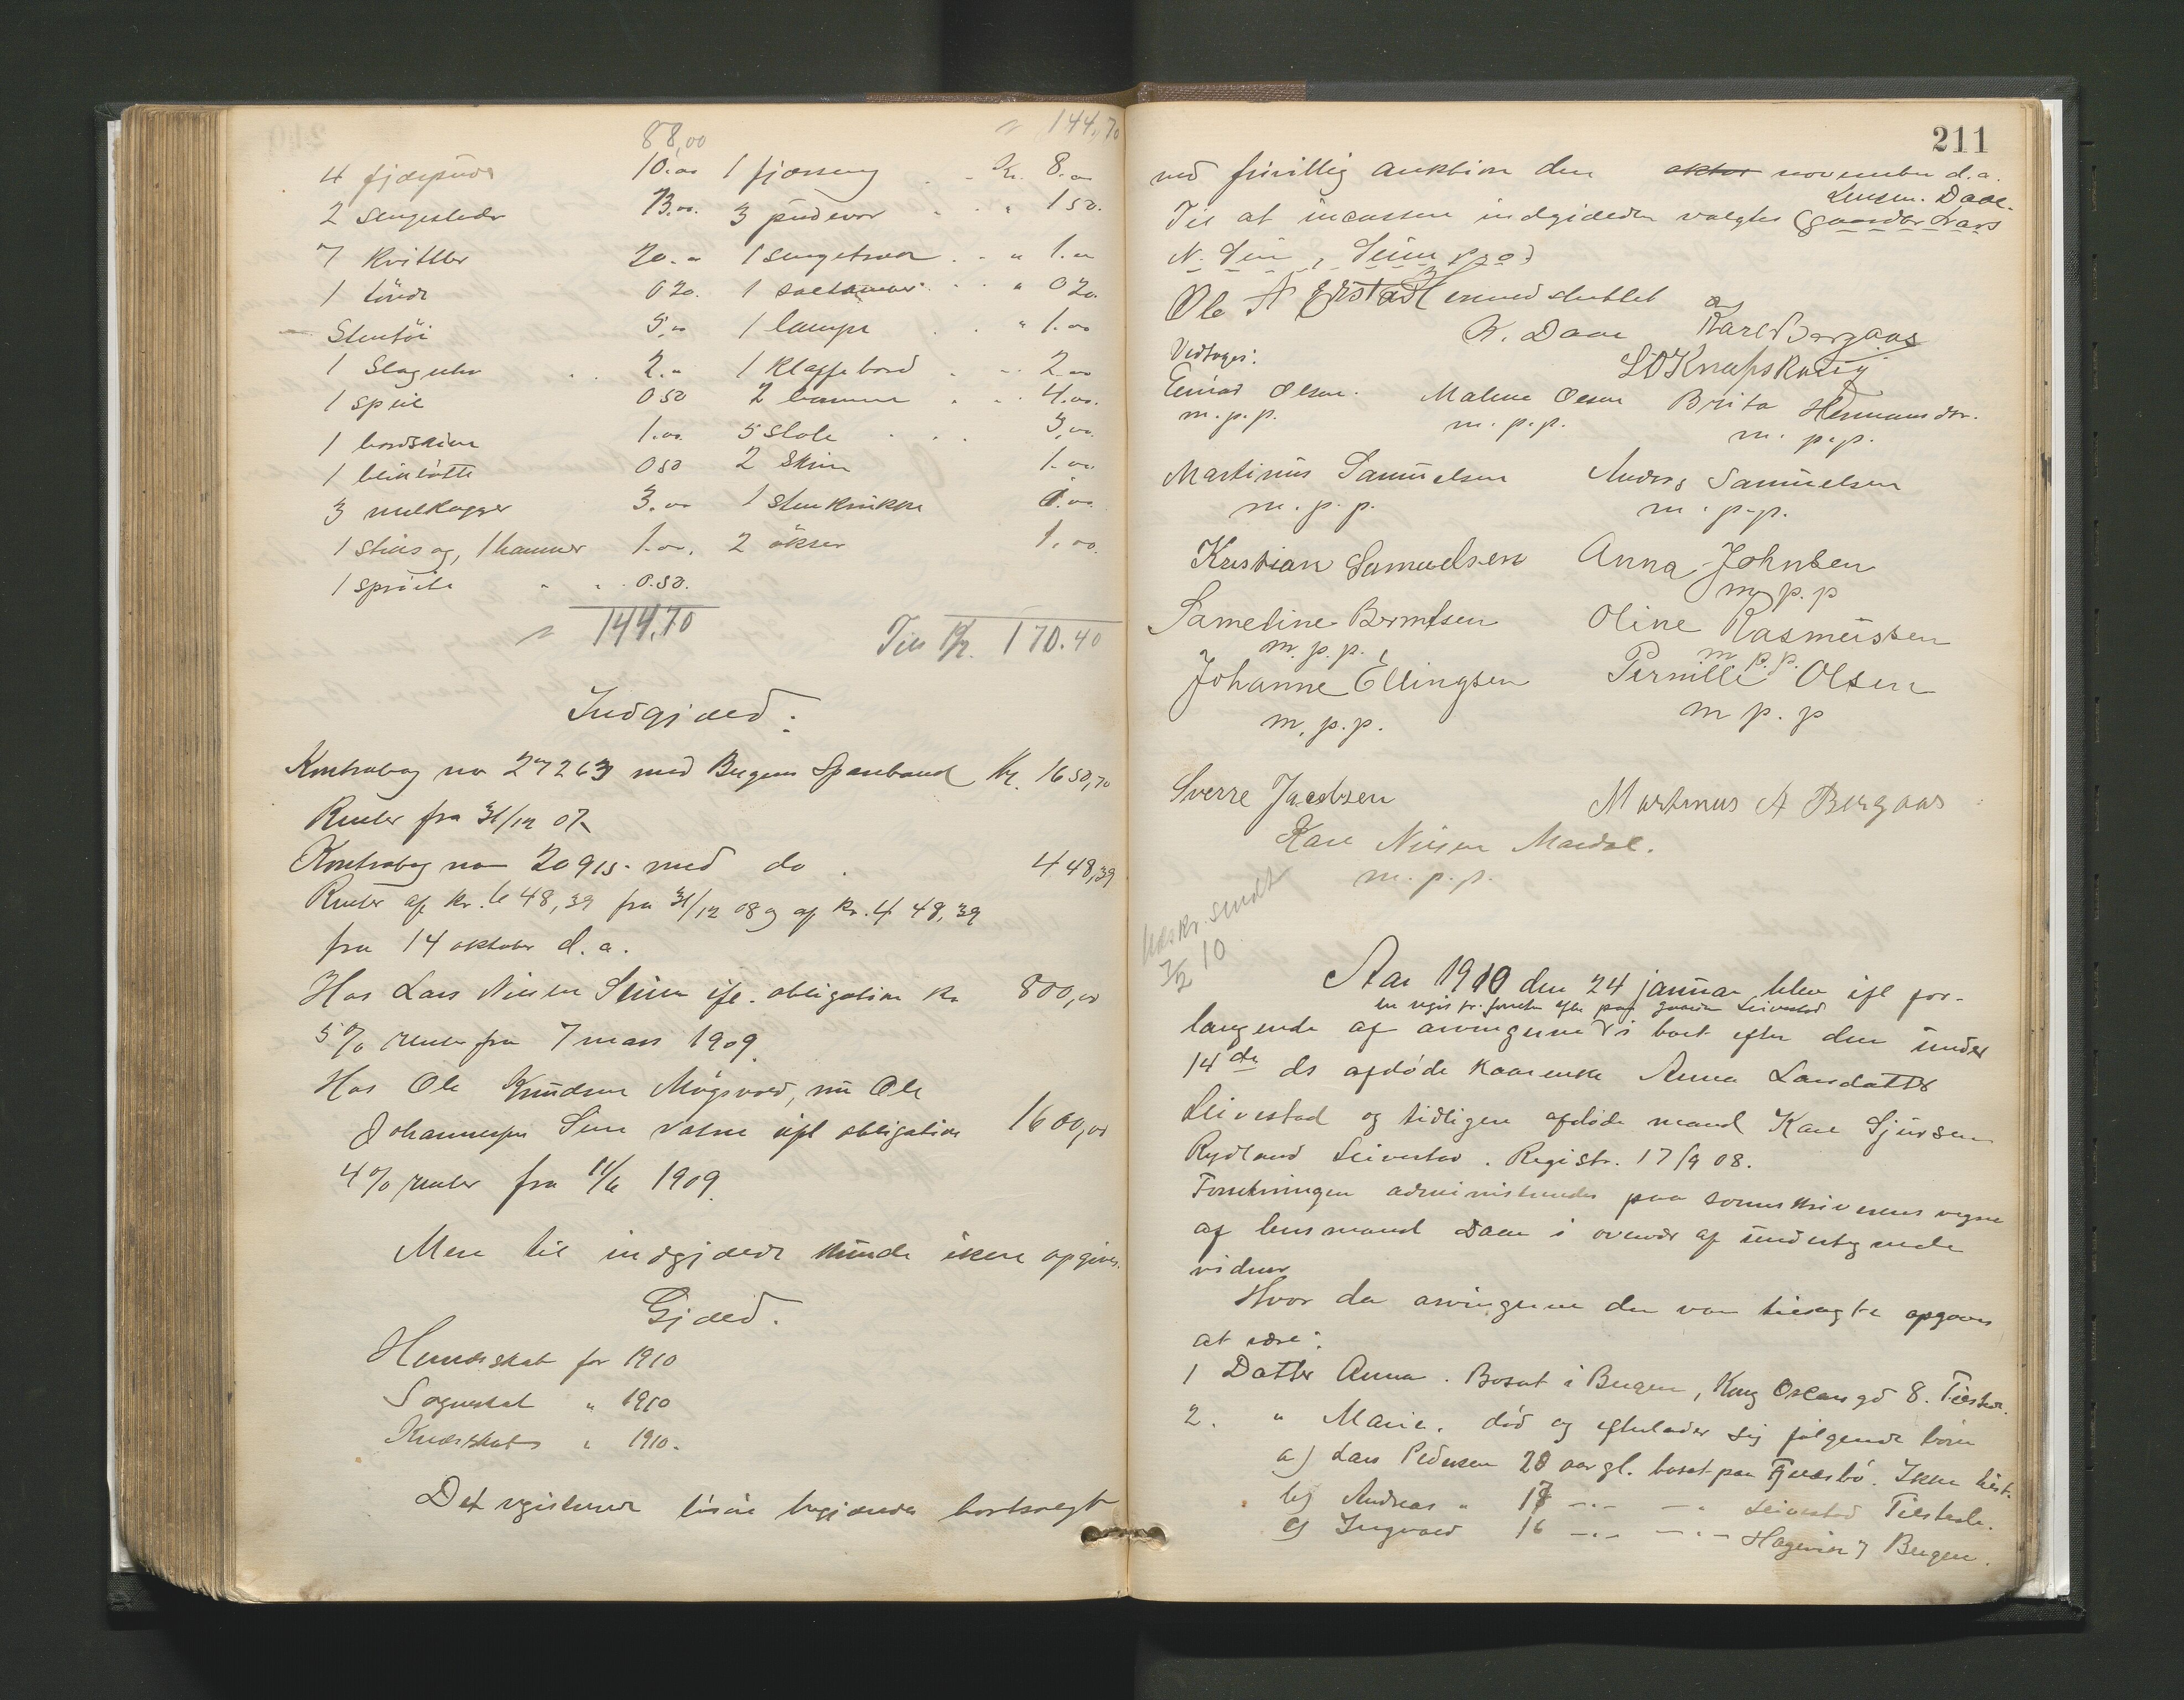 88,00 " 144,70
4 fjærpuder 10.00 1 fjærseng Kr. 8.00
2 Sengesteder 13.00. 3 pudevor " 1 50.
7 Kvitler 20.00 1 sengetvær " 1.00
1 tönde 0 20. 1 " 0 20.
Stentöi 5.00 1 lampe " 1.00
1 Slaguhr 2.00 1 Klaffebord 2.00
1 speil 0 50 2 4.00.
1 bordskive 1.00. 5 Stole 3,00
1 0 50 2 Skrin 1.00.
3 melkagger 3.00 1
1 stiksag, 1 hammer 1.00. 2 økser 1.00.
1 0.50.
" 144,70 Til Kr. 170.40
Indgjæld:
Kontrabog no 27263 med Bergens Sparebank Kr. 1650,70
Renter fra 31/12 07
Kontrabog no 20915 med do 448,39
Renter af kr. 648,39 fra 31/12 08 og af kr. 448,39
fra 14 oktober d.a.
Hos Lars Nilsen Seim ifl. obligation kr 800,00
5% renter fra 7 mars 1909.
Hos Ole Knudsen Mögsvad, nu Ole
Johannessen Seim ifl obligation 1600,00
4% renter fra 11/6 1909.
Mere til indgjæld kunde ikke opgives.
Gjæld.
Herredsskat for 1910
Sogneskat " 1910
" 1910.
Det registrerede lösöre begjæredes bortsolgt
211
ved frivillig auktion den oktbr november d.a.
Til at incassere indgjælden valgtes Lensm. Daae. (gaardbr Lars
N. Seim, Seim
Ole A Eikstad Hermed sluttet
K. Daae og Karl Bergaas
Vedtages: L O Knapskaug
Einar Olsen. Malene Olsen Brita Hermansdtr.
m.p.p. m.p.p. m.p.p.
Martinus Samuelsen Anders Samuelsen
m.p.p. m.p.p.
Kristian Samuelsen Anna Johnsen
m p.p
Sameline Berntsen Oline Rasmussen
m.p.p. m p.p.
Johanne Ellingsen Pernille Olsen
m.p.p. m p.p
Sverre Jacobsen Martinus A Bergaas
Karl Nilsen Mardal.
m.p.p.
Udskr. sendt
3/2 10
Aar 1910 den 24 januar blev ifl for-
langende af arvingerne en regis tr. forretn. efter paa gaarden Leivestad i boet efter den under
14de ds afdöde kaarenke Anna Larsdatter
Leivestad og tidligere afdöde mand Karl Sjursen
Rydland Leivestad. Registr. 17/9 08.
Forretningen administreredes paa sorenskriverens vegne
af lensmand Daae i overvær af undertegnede
vidner
Hvor da arvingerne der var tilsagte opgaves
at være:
1 Datter Anna. Bosat i Bergen, Kong Oscarsgd 8. Tilstede.
2. " Marie. död og efterlader sig fölgende börn
a) Lars Pedersen 20 aar gl. bosat paa Fjeldsbö. Ikke tilst.
b) Andreas " 17 -"- -"- Leivestad Tilstede.
c) Ingvald 16 -"- -"- Bergen.